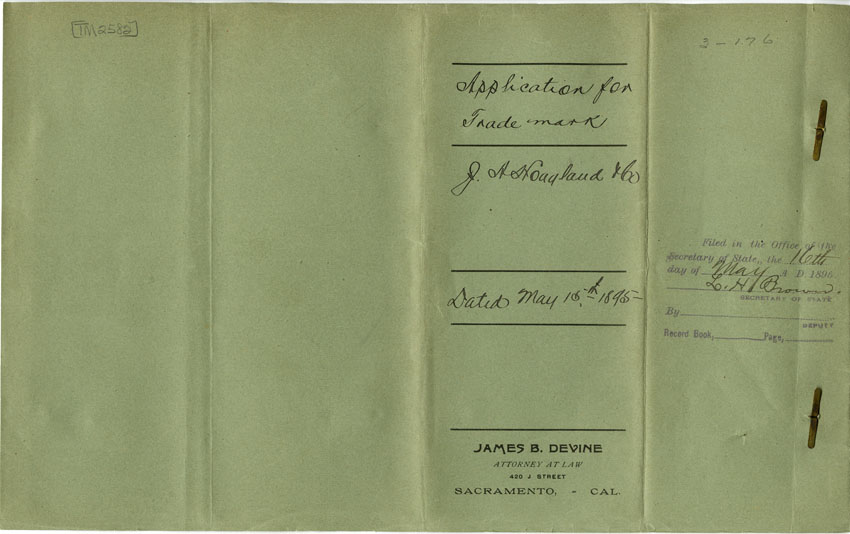 [TM2582]
3-176
Application for
Trade mark
J. A Hoagland & Co
Dated May 15th 1895
JAMES B. DEVINE
ATTORNEY AT LAW
420 J STREET
SACRAMENTO, - CAL.
Filed in the Office of the
Secretary of State, the 16th
day of May A D 1895
L. H. Brown.
SECRETARY OF STATE
By
DEPUTY
Record Book, Page,